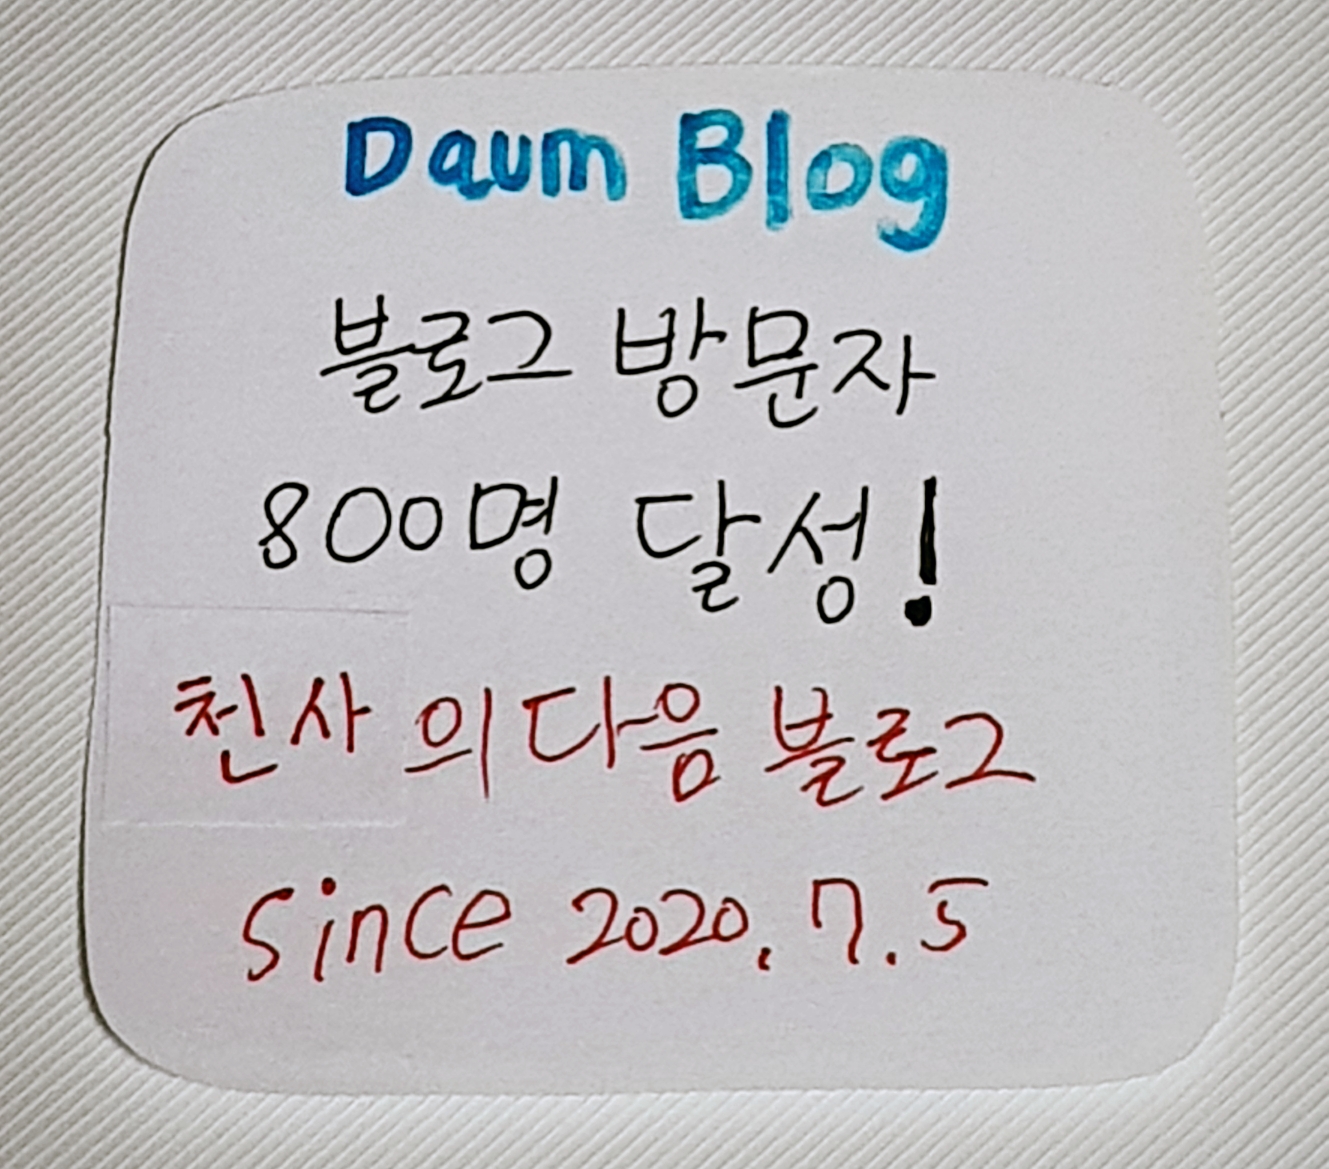 Daum Blog
블로그 방문자
800명 달성!
천사의 다음 블로그
since 2020. 7. 5